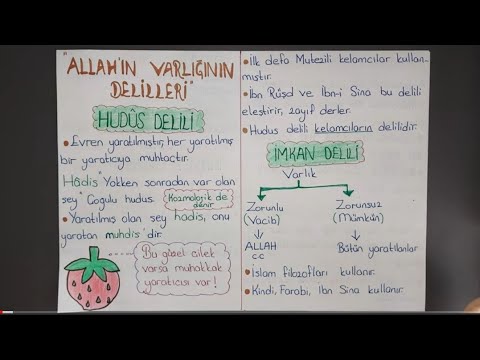 ALLAH'IN VARLIĞININ
DELİLLERİ
HUDÛS DELİLİ
• Evren yaratılmıştır, her yaratılmış
bir yaratıcıya muhtaçtır.
Hâdis "Yokken sonradan var olan
şey" Çoğulu hudus. Kozmolojik de
denir
• Yaratılmış olan şey hadis, onu
yaratan muhdis'dir.
Bu güzel çilek
varsa muhakkak
yaratıcısı var!
• İlk defa Mutezili kelamcılar kullan-
mıştır.
• İbn Rüşd ve İbn-i Sina bu delili
eleştirir, zayıf derler.
• Hudus delili kelamcıların delilidir.
İMKAN DELİLİ
Varlık
Zorunlu
(Vacib)
ALLAH
CC
Zorunsuz
(Mümkün)
Bütün yaratılanlar
• İslam filozofları kullanır.
• Kindi, Farabi, İbn Sina kullanır.